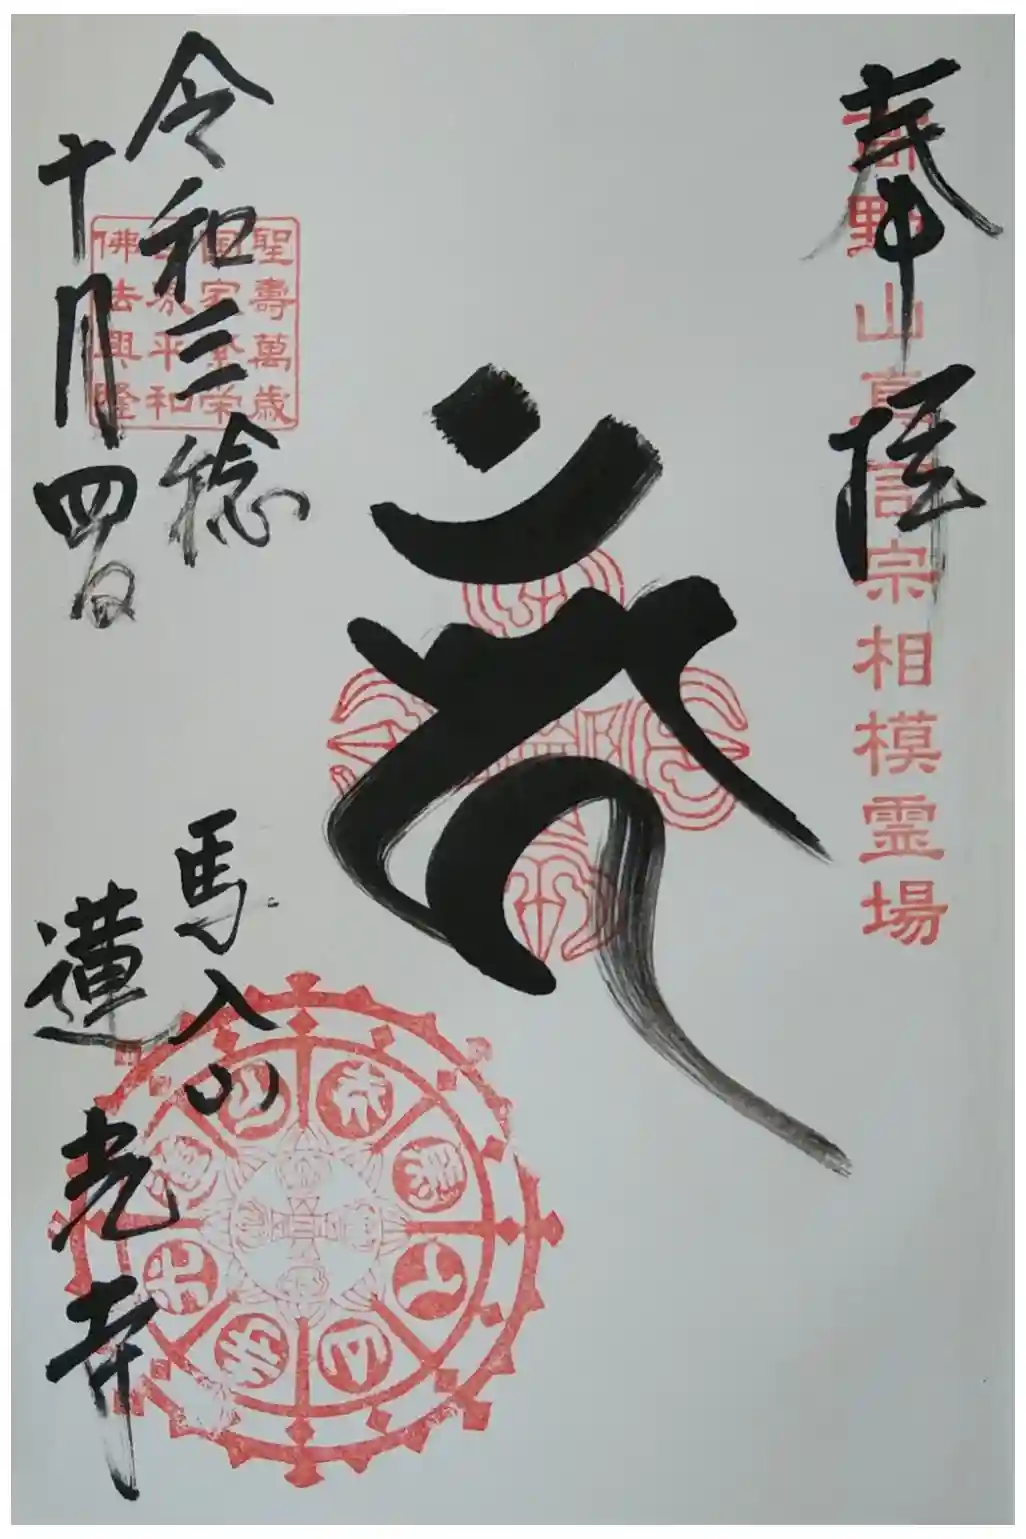 奉拝
高野山真言宗相模霊場
𑖮𑖳𑖽
令和三稔
十月四日
聖壽萬歳
国家繁栄
佛法興隆
馬入山
蓮光寺